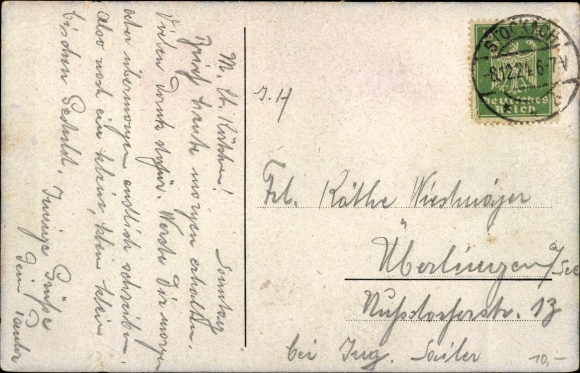 Sonntag
M. lb. Käthen!
Brief heute morgen erhalten.
Vielen Dank dafür. Werde Dir morgen
oder übermorgen endlich schreiben.
Also noch ein klein, klein klein
bischen Geduld. Innige Grüße
Dein
J. H
STOCKACH
8.12.24. 6-7 V
Deutsches
Reich
Frl. Käthe Wiedmayer
Überlingen a/See
Nußdorferstr. 13
bei Ing. Sailer
10,-